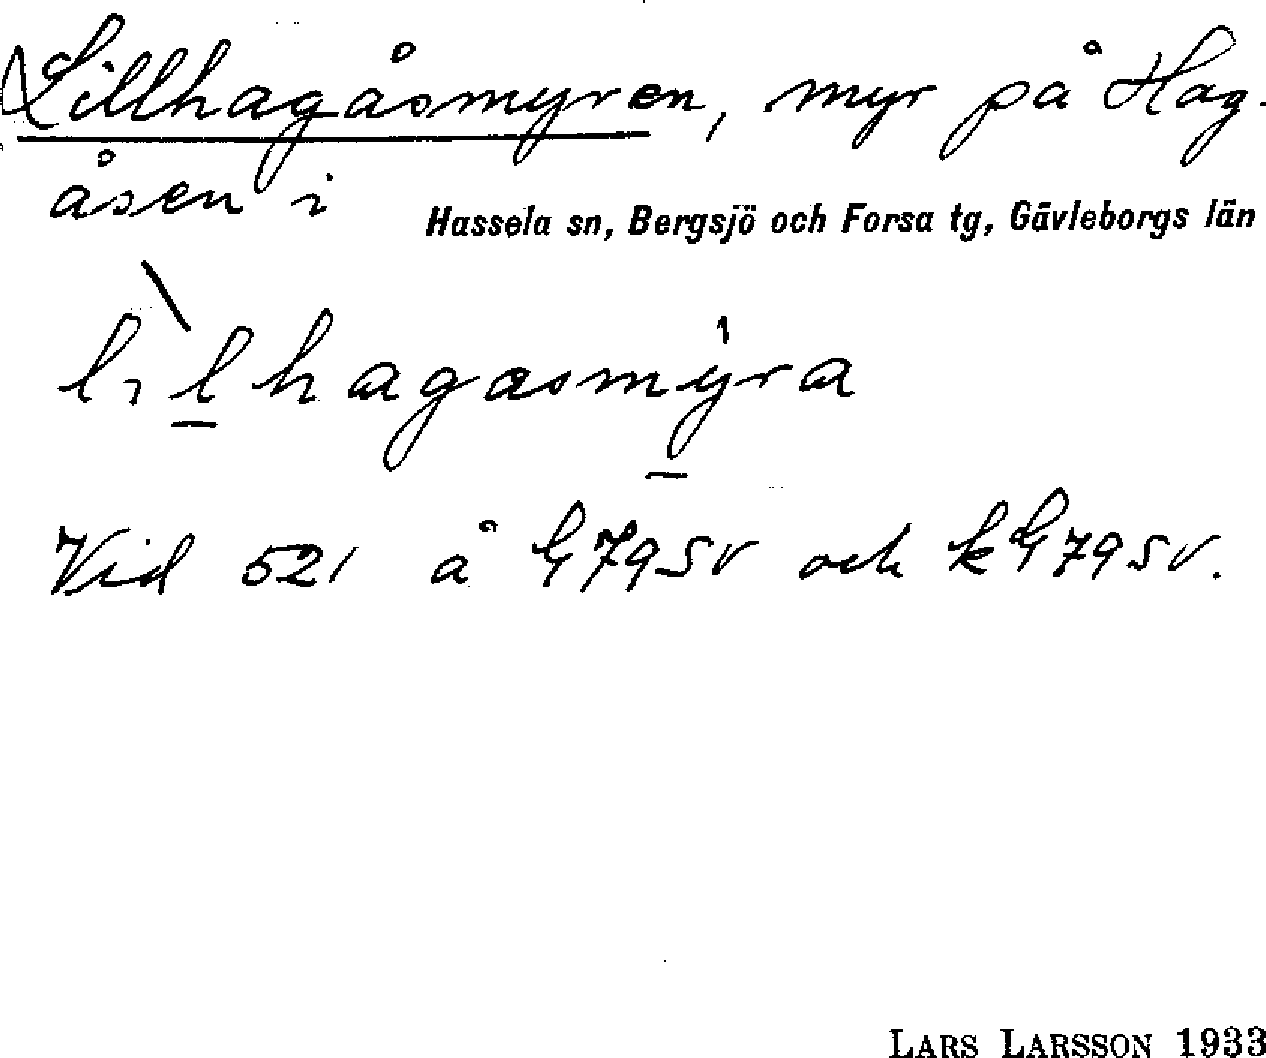 Lillhagåsmyren, myr på Hag-
åsen i Hassela sn, Bergsjö och Forsa tg, Gävleborgs län
lìlhagasmýra
Vid 521 å G79SV och kG79SV.
LARS LARSSON 1933